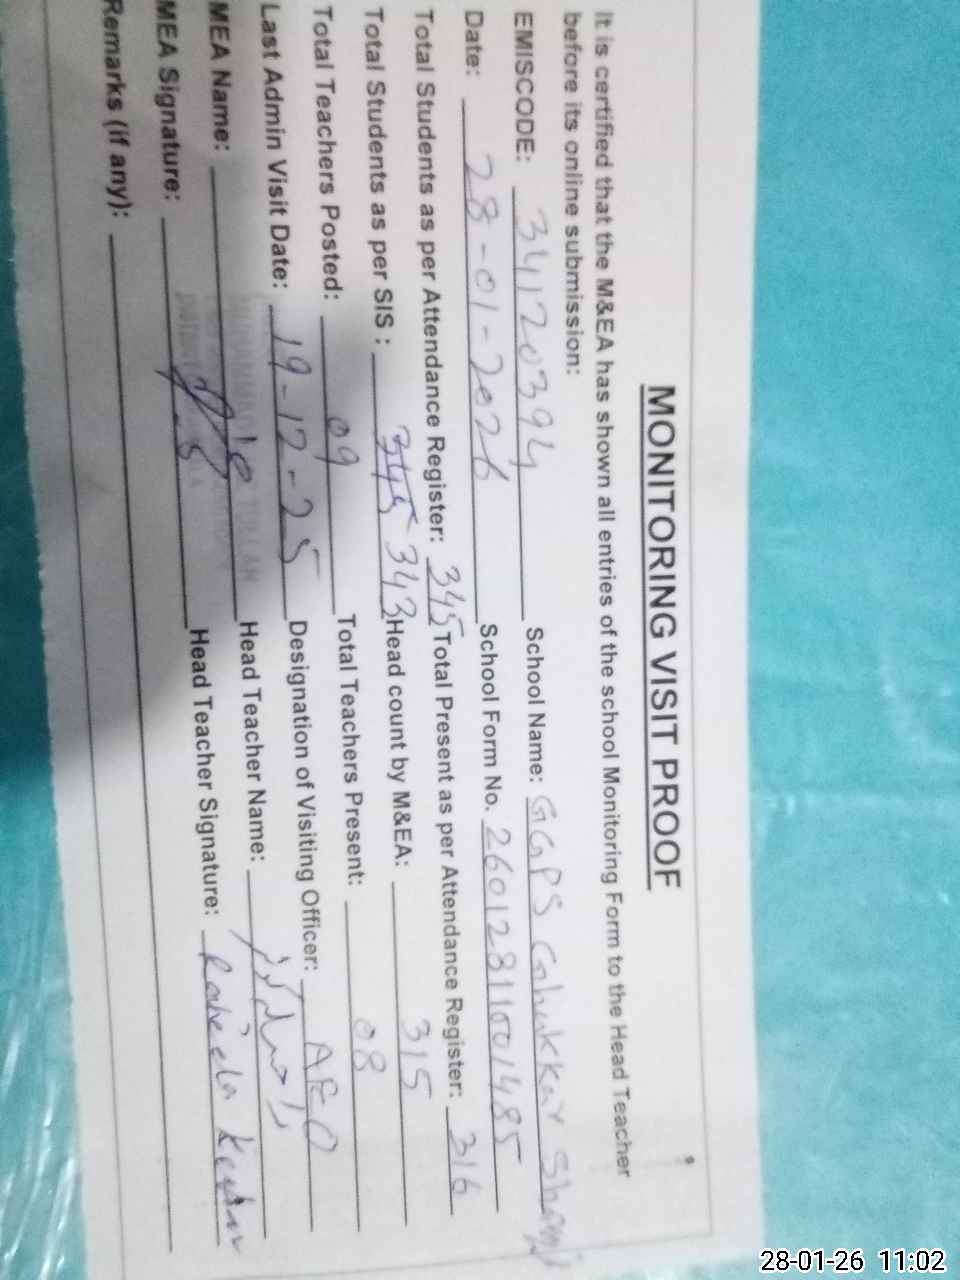 MONITORING VISIT PROOF
It is certified that the M&EA has shown all entries of the school Monitoring Form to the Head Teacher
before its online submission:
EMISCODE: 34120394 School Name: GGPS Ghakkar Shamji
Date: 28-01-2026 School Form No. 260128110014​85
Total Students as per Attendance Register: 345 Total Present as per Attendance Register: 316
Total Students as per SIS : 345 343 Head count by M&EA: 315
Total Teachers Posted: 09 Total Teachers Present: 08
Last Admin Visit Date: 19-12-25 Designation of Visiting Officer: AEO
MEA Name: Head Teacher Name:
MEA Signature: Head Teacher Signature:
Remarks (if any):
28-01-26 11:02